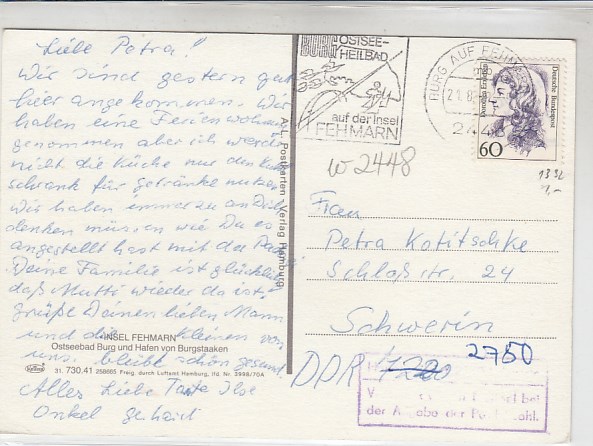 Liebe Petra!
Wir sind gestern gut
hier angekommen. Wir
haben eine Ferienwohnung
genommen aber ich werde
nicht die Küche nur den Kühl
schrank für getränke nutzen.
Wir haben immerzu an Dich
denken müssen wie Du es
angestellt hast mit der
Deine Familie ist glücklich
daß Mutti wieder da ist.
grüße Deinen lieben Mann
und die kleinen von
uns. bleibt schön gesund.
Alles Liebe Tante Ilse
Onkel Gerhard
INSEL FEHMARN
Ostseebad Burg und Hafen von Burgstaaken
31. 730.41 258665 Freig. durch Luftamt Hamburg, lfd. Nr. 2998/70A
A.-L. Postkarten-Verlag Hamburg
BURG OSTSEE-
HEILBAD
auf der Insel
FEHMARN
BURG AUF FEHMARN
2448
Deutsche Bundespost
60
W 2448
Frau
Petra Kotitschke
Schloßstr. 24
Schwerin
2750
DDR
der Angabe der Postleitzahl.